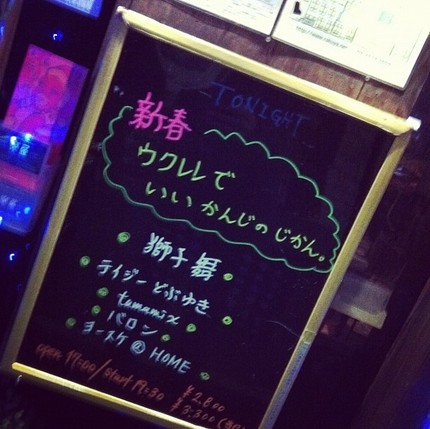 TONIGHT
新春
ウクレレで
いいかんじのじかん。
獅子舞
テイジーどぶゆき
tumamix
バロン
ヨースケ@HOME
OPEN 19:00/start 19:30
¥2,800
¥3,300